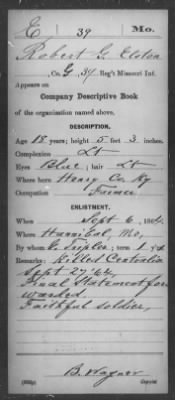 E 39 Mo.
Robert G. Elston
, Co. G, 39 Reg't Missouri Inf.
Appears on
Company Descriptive Book
of the organization named above.
DESCRIPTION.
Age 18 years; height 5 feet 3 inches.
Complexion Lt
Eyes Blue; hair Lt
Where born Henry Co Ky
Occupation Farmer
ENLISTMENT.
When Sept 6, 1864.
Where Hannibal, Mo,
By whom ; term 1 y's
Remarks: Killed Centralia
Sept 27 '64
Final Statement for
warded.
Faithful soldier,
B. Wagner
Copyist